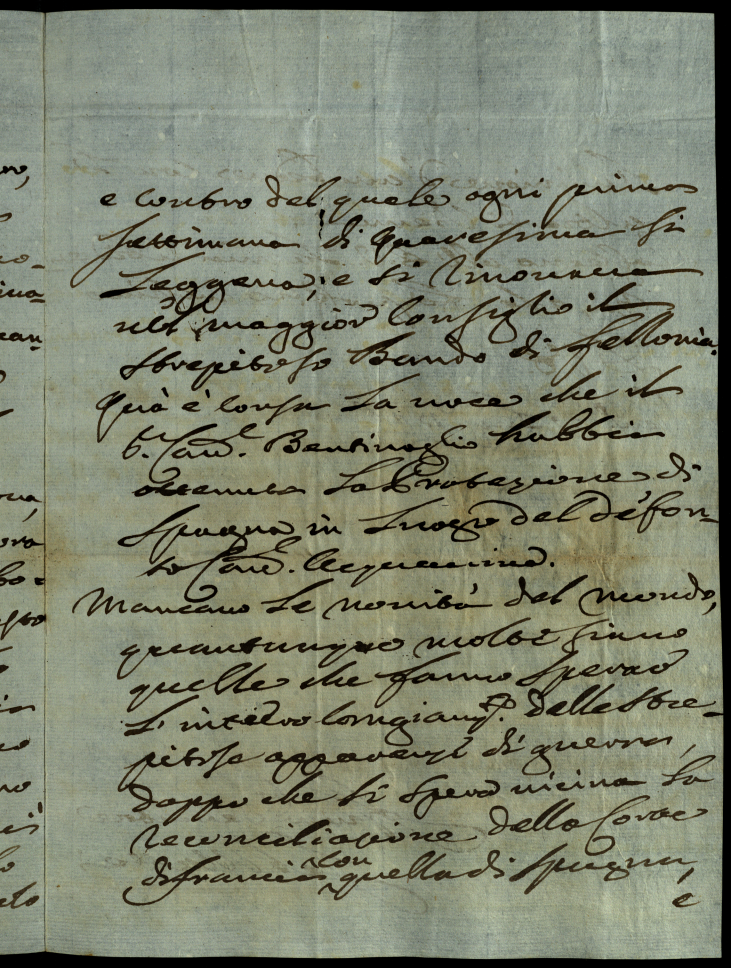 e contro del quale ogni prima
settimana di quaresima si
Leggeva, e si rinovava
nel maggior Consiglio il
strepitoso Bando di fellonia.
Quà è corsa La voce che il
S.r Card.l Bentivoglio habbia
ottenuta La Protezione di
Spagna in Luogo del défon-
to Card.l Acquaviva.
Mancano Le novità del mondo,
quantunque molte siano
quelle che fanno sperare
L'intero Congiam.to delle stre-
pitose apparenze di guerra,
doppo che si spera vicina La
reconciliazione della Corte
di francia con quella di Spagna,
è